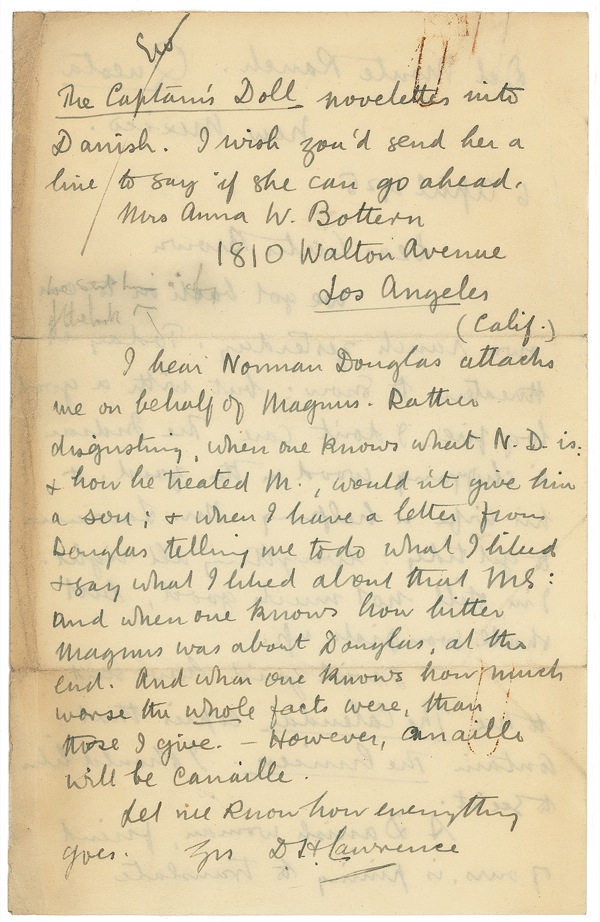 The Captain's Doll novelettes into
Danish. I wish you'd send her a
line to say if she can go ahead.
Mrs Anna W. Bottern
1810 Walton Avenue
Los Angeles
(Calif.)
I hear Norman Douglas attacks
me on behalf of Magnus. Rather
disgusting, when one knows what N. D. is:
& how he treated M., wouldn't give him
a sou; & when I have a letter from
Douglas telling me to do what I liked
& say what I liked about that MS:
and when one knows how bitter
Magnus was about Douglas, at the
end. And when one knows how much
worse the whole facts were, than
those I give. — However, canaille
will be canaille.
Let me know how everything
goes. Yrs D.H. Lawrence